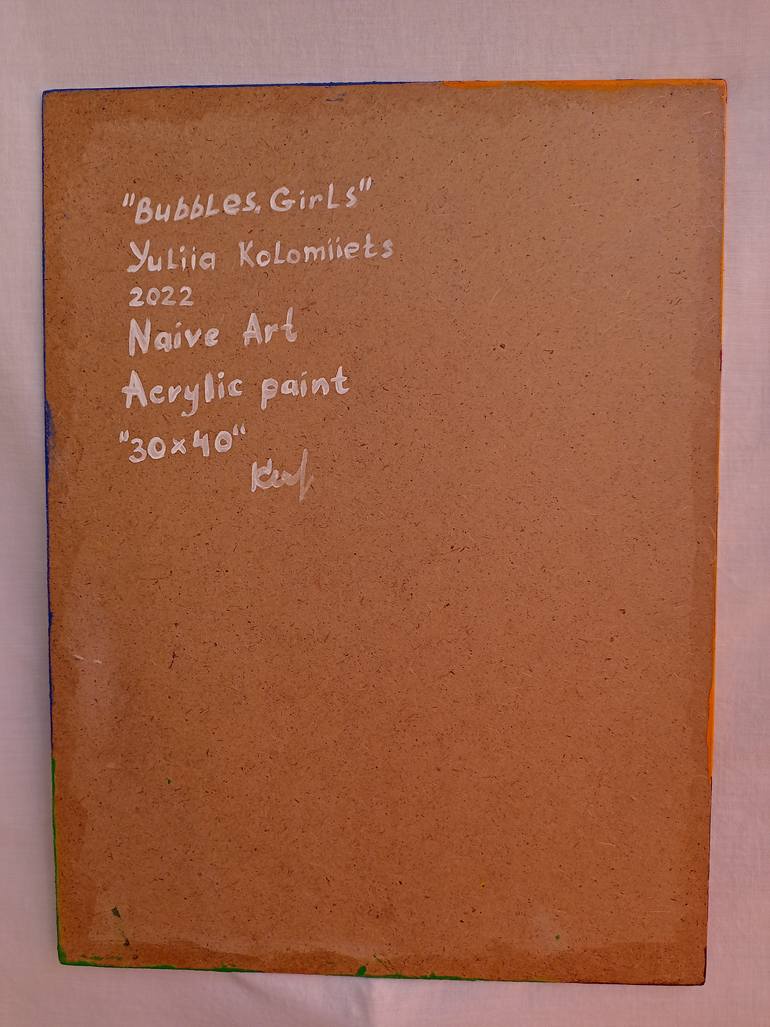 "Bubbles. Girls"
Yuliia Kolomiiets
2022
Naive Art
Acrylic paint
"30x40"